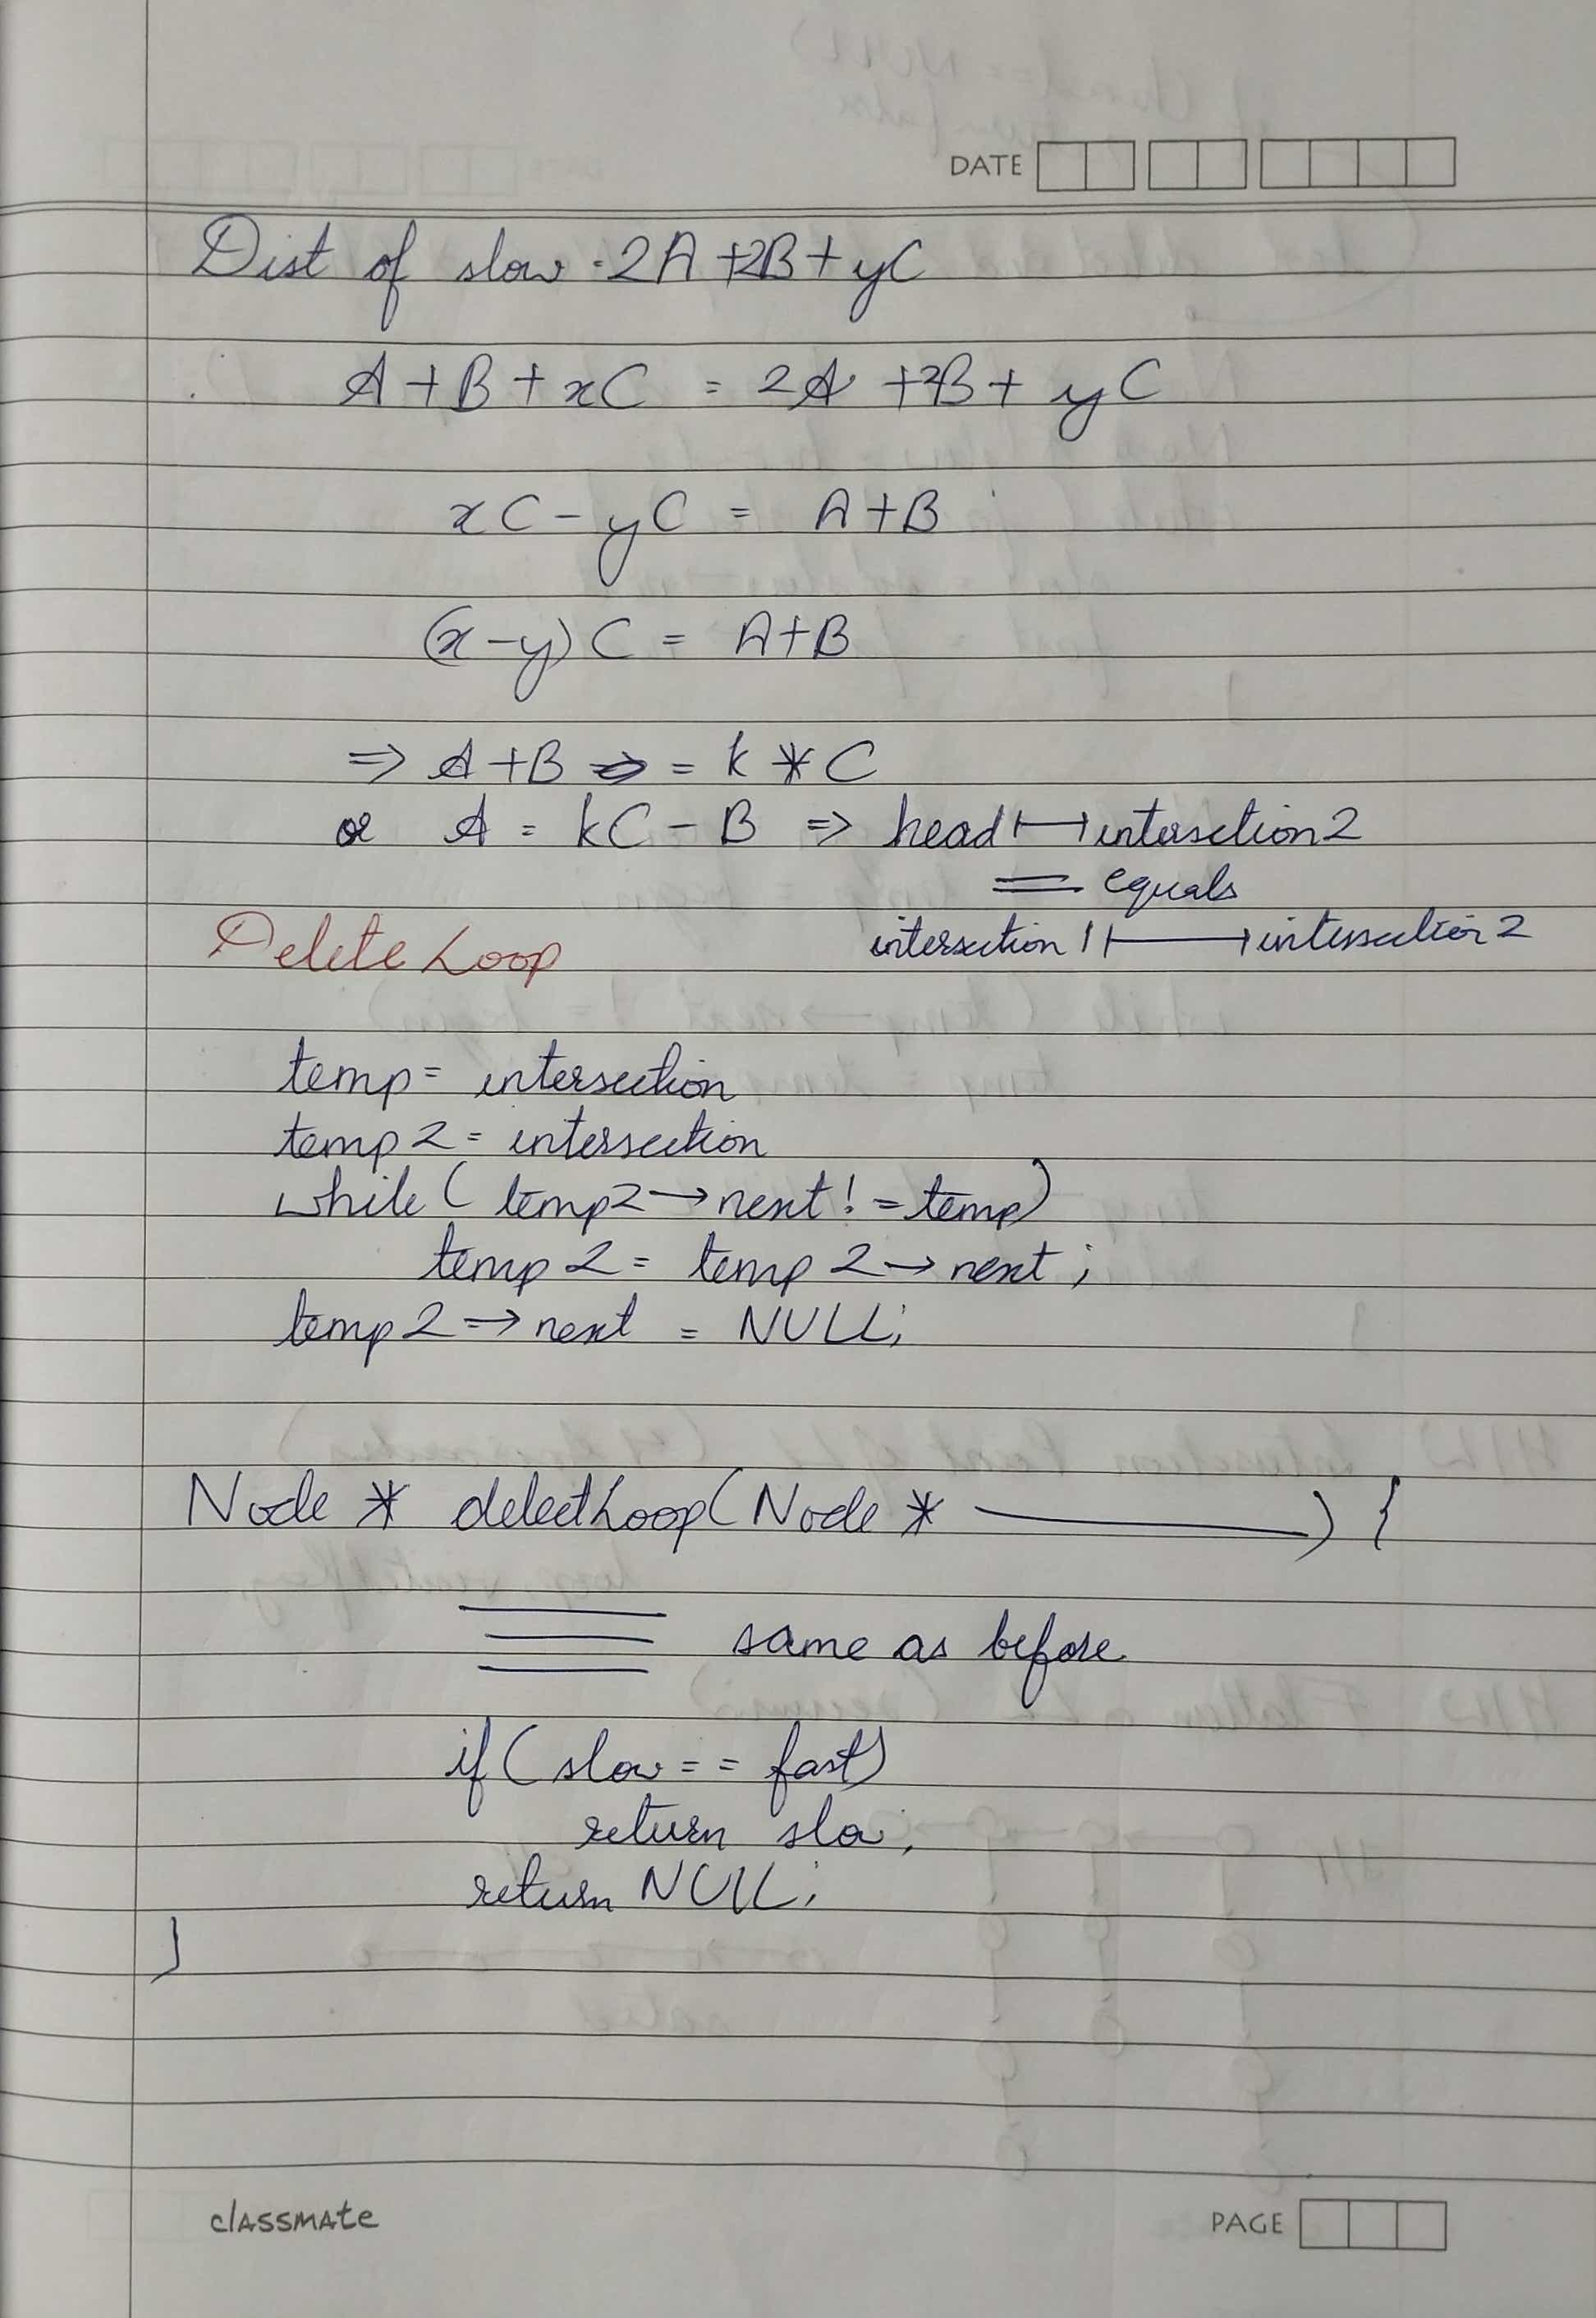 DATE
Dist of slow = 2A +2B + yC
A + B + xC = 2A +2B + yC
xC - yC = A+B
(x-y) C = A+B
=> A+B = k * C
or A = kC - B => head ⟼ intersction 2
= equals
Delete Loop
intersection 1 ⟼ intersection 2
temp = intersection
temp 2 = intersection
while ( temp2 → next != temp)
temp 2 = temp 2 → next ;
temp 2 → next = NULL;
Node * detectLoop( Node * ——— ) {
same as before
if ( slow == fast)
return slo ;
return NULL;
}
classmate
PAGE